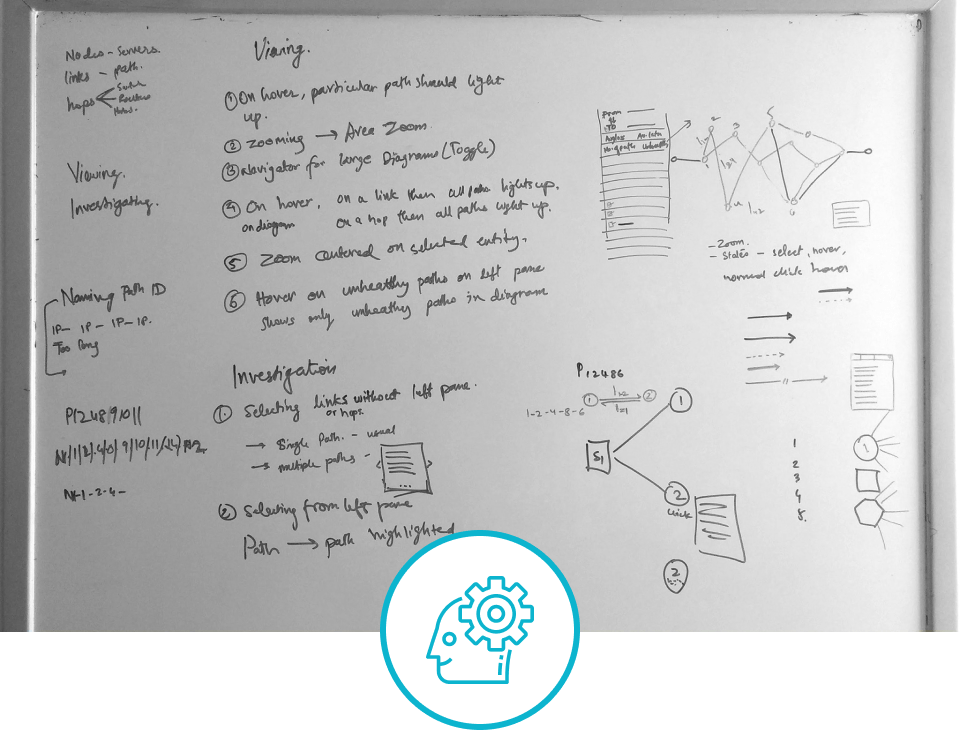 Nodes - Servers.
links - path.
hops
Switch
Routers
Viewing.
Investigating.
Naming Path ID
IP - IP - IP - IP.
Too long
P1248/9/10/11
N-1-2-4-
Viewing.
① On hover, particular path should light
up.
② Zooming → Area Zoom
③ Navigator for large Diagrams (Toggle)
④ On hover, on a link then all paths lights up.
on diagram on a hop then all paths light up.
⑤ Zoom centered on selected entity.
⑥ Hover on unhealthy paths on left pane
shows only unhealthy paths in diagram
Investigation
①. Selecting links without left pane.
or hops.
→ Single Path. - usual
→ multiple paths -
② Selecting from left pane
Path → path highlighted
From
TO
No. of paths Unhealthy
2
3
5
1
4
6
- Zoom.
- States - select, hover,
normal click hover
P12486
1-2-4-8-6
① ②
S1
①
②
click
②
1
2
3
4